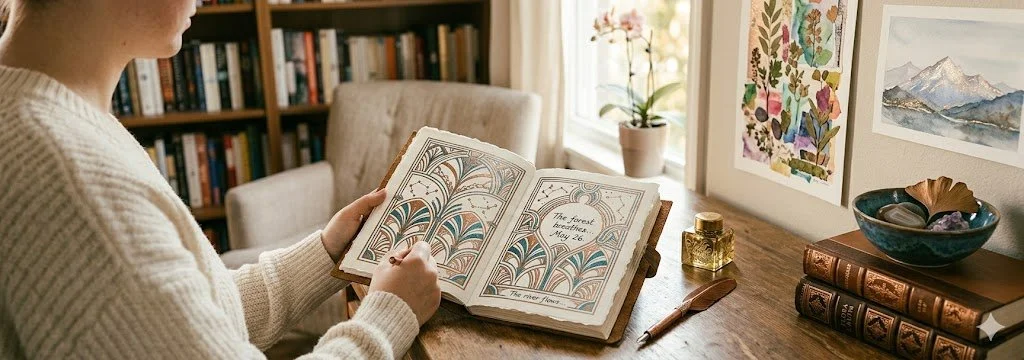 The forest
breathes...
May 26.
The river flows...